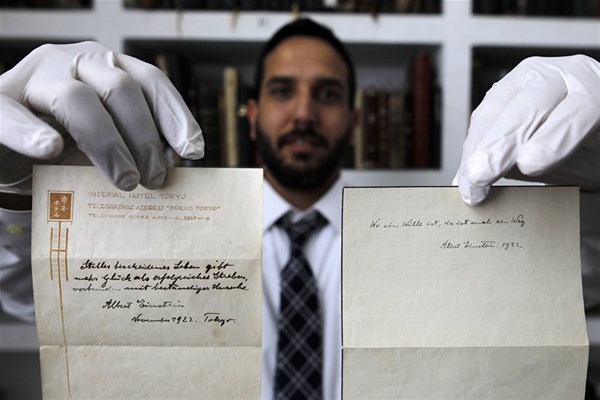 IMPERIAL HOTEL TOKYO
TELEGRAPHIC ADDRESS TOKYO"
TELEPHONE GINZA
Stilles bescheidenes Leben gibt
mehr Glück als erfolgreiches Streben,
verbunden mit beständiger Unruhe.
Albert Einstein
November 1922. Tokyo.
Wo ein Wille ist, da ist auch ein Weg.
Albert Einstein. 1922.